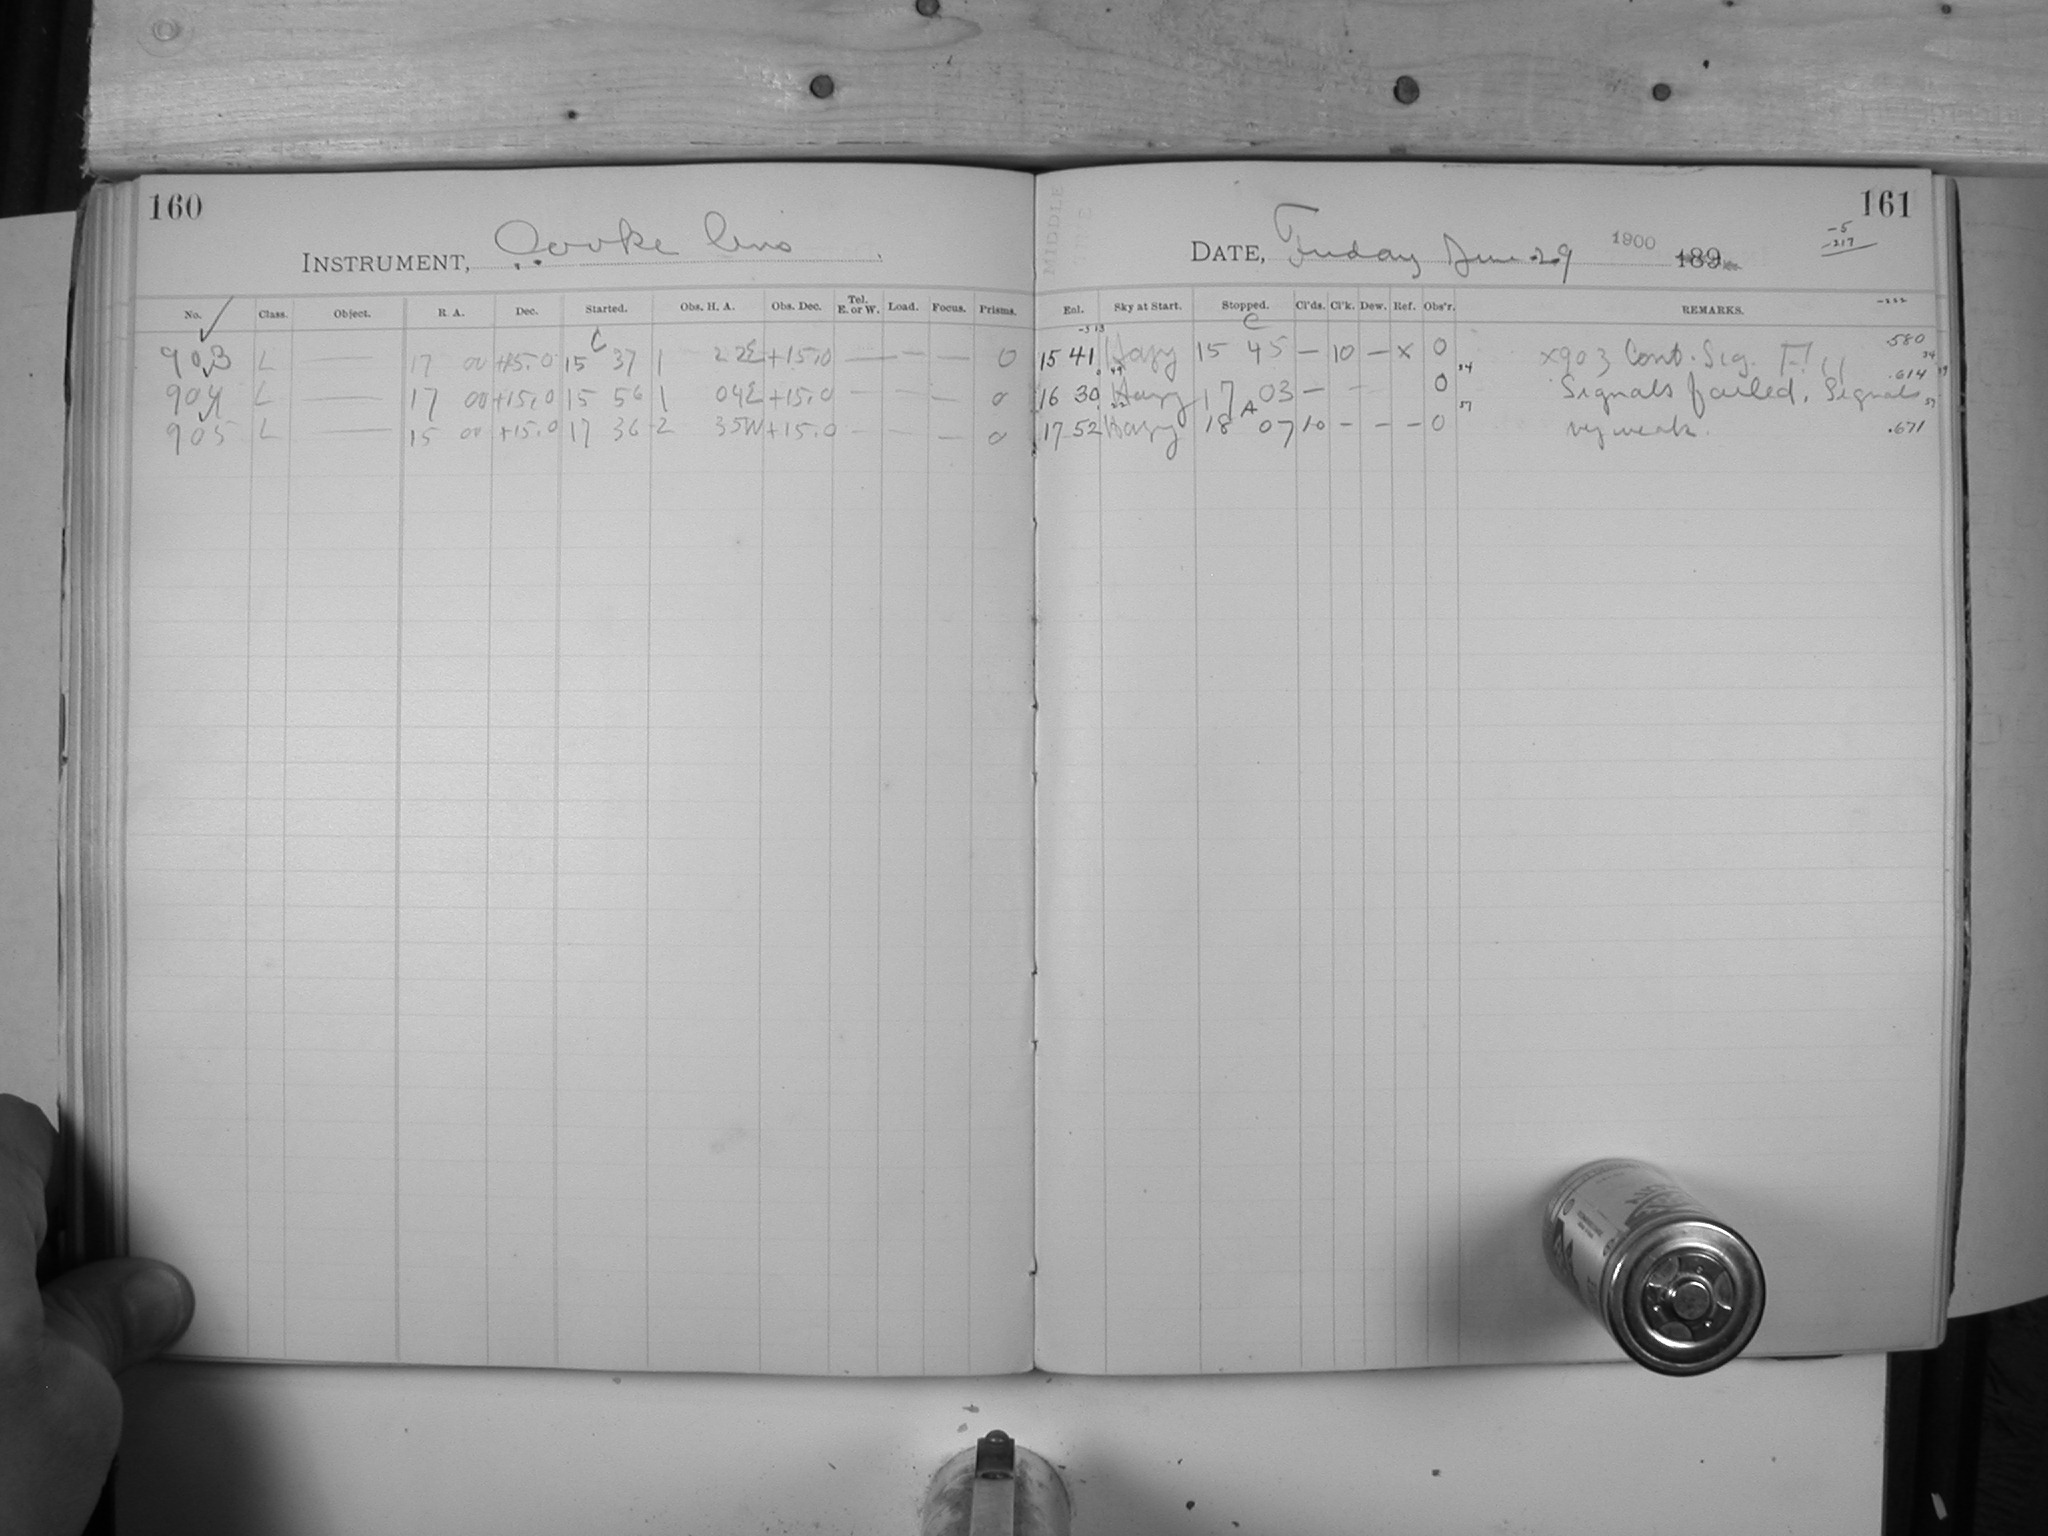 160
INSTRUMENT, Cooke lens
No. Class. Object. R. A. Dec. Started. Obs. H. A. Obs. Dec. Tel. E. or W. Load. Focus. Prisms.
903 L — 17 00 +15.0 15 37 1 22E +15.0 — — — 0
904 L — 17 00 +15.0 15 56 1 04E +15.0 — — — 0
905 L — 15 00 +15.0 17 36 2 35W +15.0 — — — 0
161
DATE, Friday June 29 1900 189
-5
-217
Eol. Sky at Start. Stopped. Cl'ds. Cl'k. Dew. Ref. Obs'r. REMARKS.
15 41 Hazy 15 45 — 10 — x 0 x903 Cont. Sig. 580
16 30 Hazy 17 03 — 0 Signals failed, Signals .614
17 52 Hazy 18 07 10 - - - 0 weak. .671